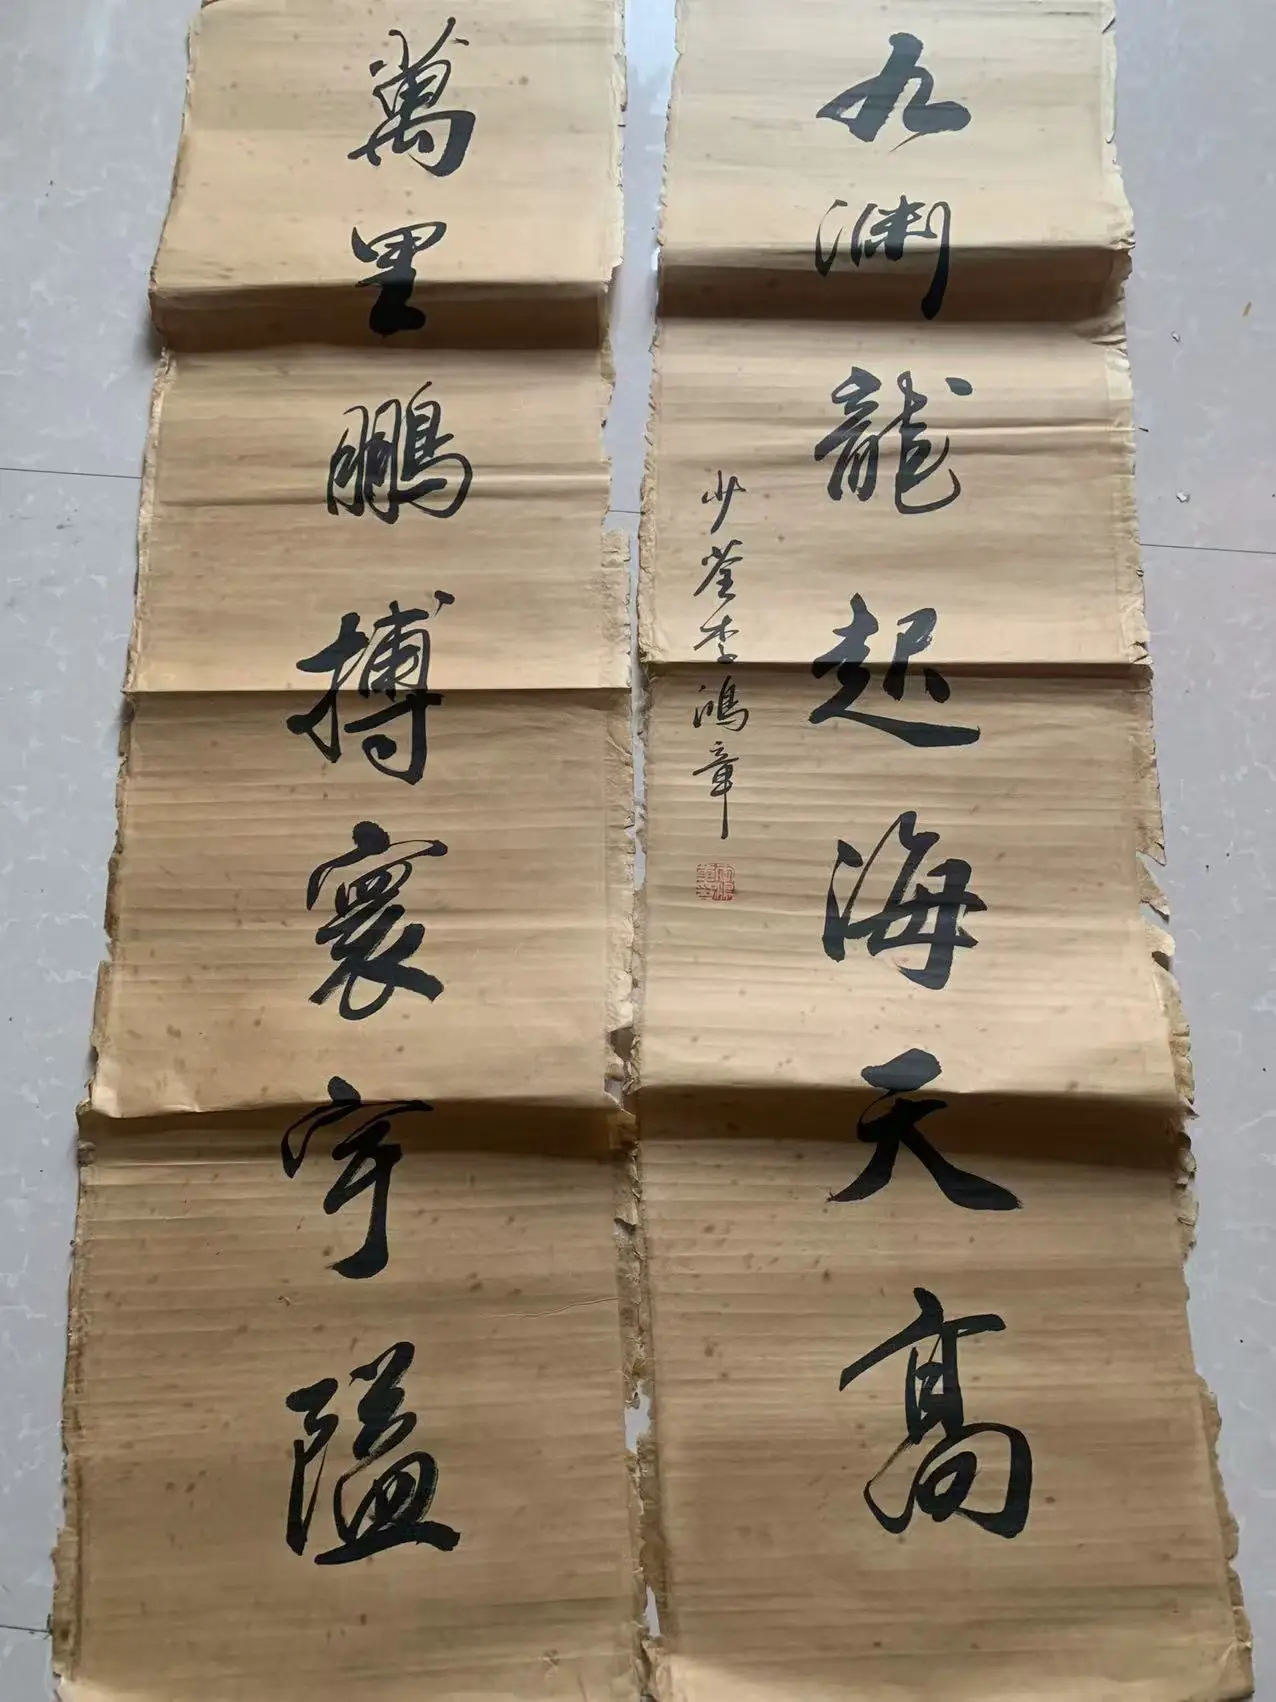 九渊龍起海天高
少荃李鴻章
萬里鵬摶寰宇隘